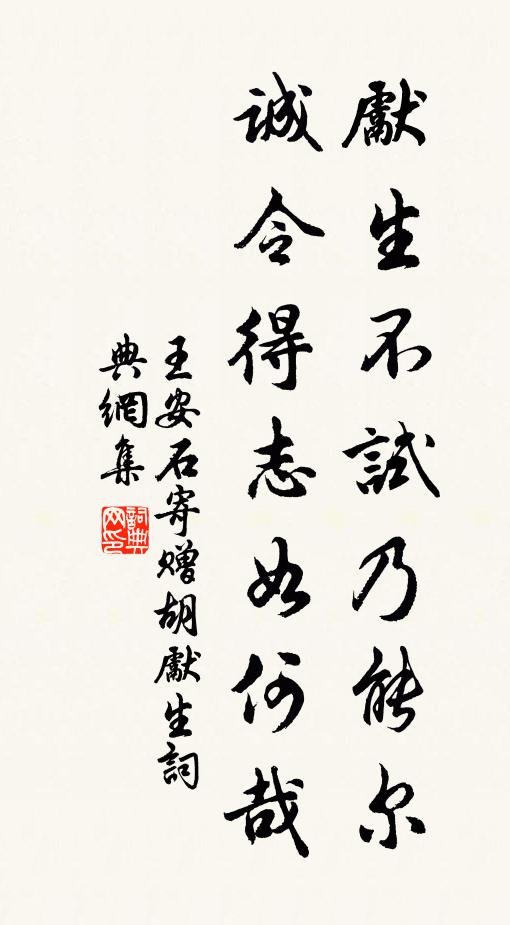 獻生不試乃能尔
誠令得志如何哉
王安石寄贈胡獻生詞
典網集
詞典
网印